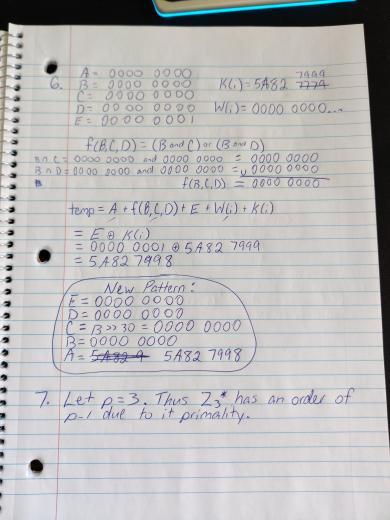 6. A = 0000 0000
B = 0000 0000
C = 0000 0000
D = 0000 0000
E = 0000 0001
K(i) = 5A82 7999
W(i) = 0000 0000...
f(B,C,D) = (B and C) or (B and D)
B ∩ C = 0000 0000 and 0000 0000 = 0000 0000
B ∩ D = 0000 0000 and 0000 0000 = ∪ 0000 0000
f(B,C,D) = 0000 0000
temp = A + f(B,C,D) + E + W(i) + K(i)
= E ⊕ K(i)
= 0000 0001 ⊕ 5A82 7999
= 5A82 7998
New Pattern:
E = 0000 0000
D = 0000 0000
C = B >> 30 = 0000 0000
B = 0000 0000
A = 5A82 7998
7. Let p = 3. Thus Z₃* has an order of
p-1 due to it primality.